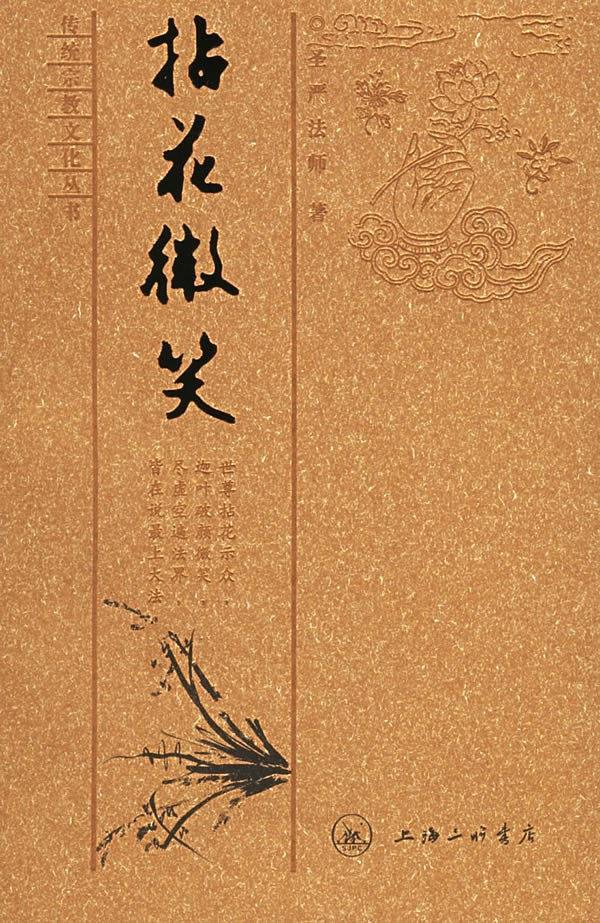 传统宗教文化丛书
拈花微笑
◎圣严法师 著
世尊拈花示众，
迦叶破颜微笑。
尽虚空遍法界，
皆在说最上大法
SJPC
上海三联书店